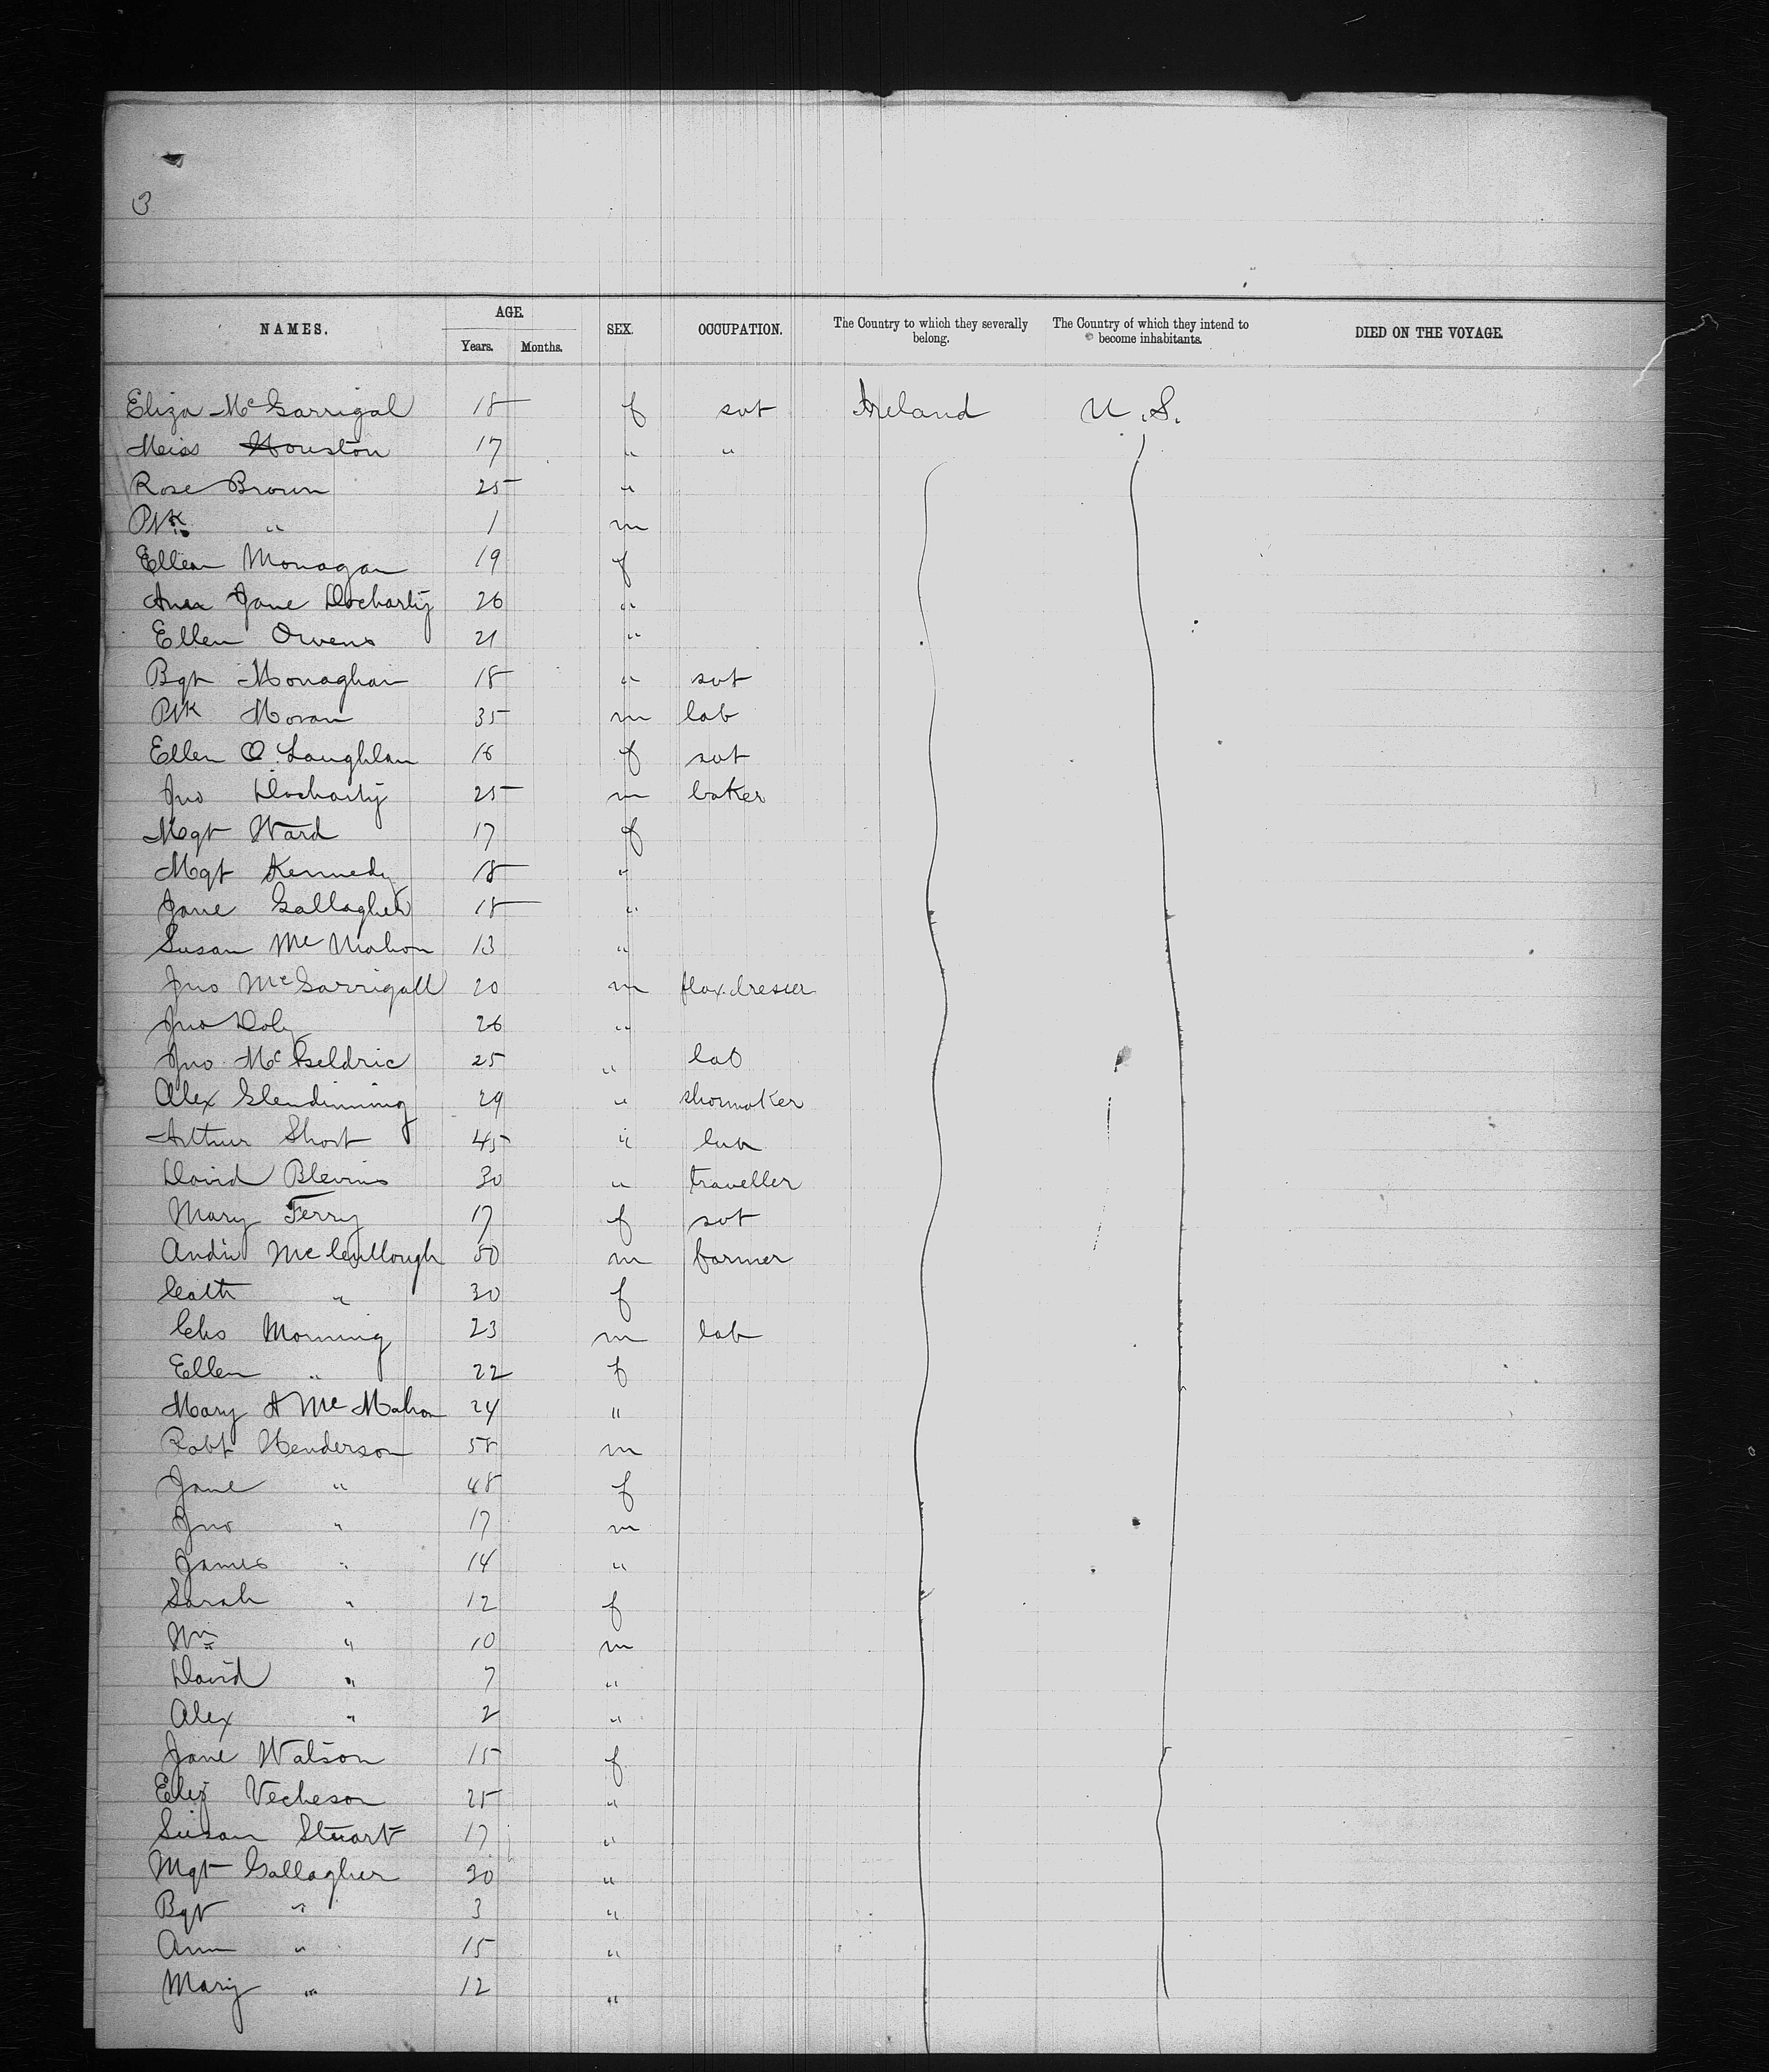 3
NAMES. AGE. SEX. OCCUPATION. The Country to which they severally belong. The Country of which they intend to become inhabitants. DIED ON THE VOYAGE.
Years. Months.
Eliza McGarrigal 18 f svt Ireland U.S.
Miss Houston 17 " "
Rose Brown 25 "
Ptk " 1 m
Ellen Monagan 19 f
Ann Jane Docharty 26 "
Ellen Owens 21 "
Bgt Monaghan 18 " svt
Ptk Moran 35 m lab
Ellen O'Laughlan 16 f svt
Jno Docharty 25 m baker
Mgt Ward 17 f
Mgt Kennedy 18 "
Jane Gallagher 18 "
Susan McMahon 13 "
Jno McGarrigall 20 m flax.dresser
Jno Doly 26 "
Jno McGeldric 25 " lab
Alex Glendinning 29 " shomaker
Arthur Short 45 " lab
David Blevins 30 " traveller
Mary Ferry 17 f svt
Andw McCullough 50 m farmer
Cath " 30 f
Chs Morning 23 m lab
Ellen " 22 f
Mary A McMahon 24 "
Robt Henderson 58 m
Jane " 48 f
Jno " 17 m
James " 14 "
Sarah " 12 f
Wm " 10 m
David " 7 "
Alex " 2 "
Jane Watson 15 f
Eliz Vecheson 25 "
Susan Stuart 17 "
Mgt Gallagher 30 "
Bgt " 3 "
Ann " 15 "
Mary " 12 "